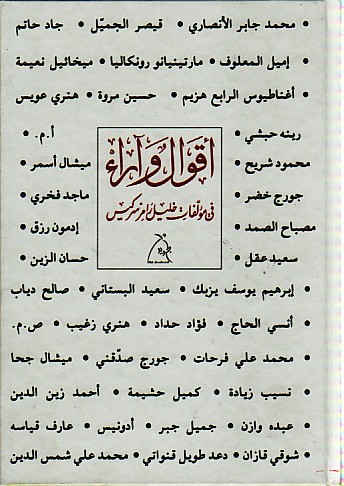 • محمد جابر الأنصاري • قيصر الجميّل • جاد حاتم
• إميل المعلوف • مارتينيانو رونكاليا • ميخائيل نعيمة
• أغناطيوس الرابع هزيم • حسين مروة • هنري عويس
• رينه حبشي
• أ.م.
• محمود شريح
• ميشال أسمر
• جورج خضر
• ماجد فخري
• مصباح الصمد
• إدمون رزق
• سعيد عقل
• حسان الزين
أقوال وآراء
في مؤلفات خليل رامز سركيس
• إبرهيم يوسف يزبك • سعيد البستاني • صالح دياب
• أنسي الحاج • فؤاد حداد • هنري زغيب • ص.م.
• محمد علي فرحات • جورج صدّقني • ميشال جحا
• نسيب زيادة • كميل حشيمة • أحمد زين الدين
• عبده وازن • جميل جبر • أدونيس • عارف قياسه
• شوقي قازان • دعد طويل قنواتي • محمد علي شمس الدين